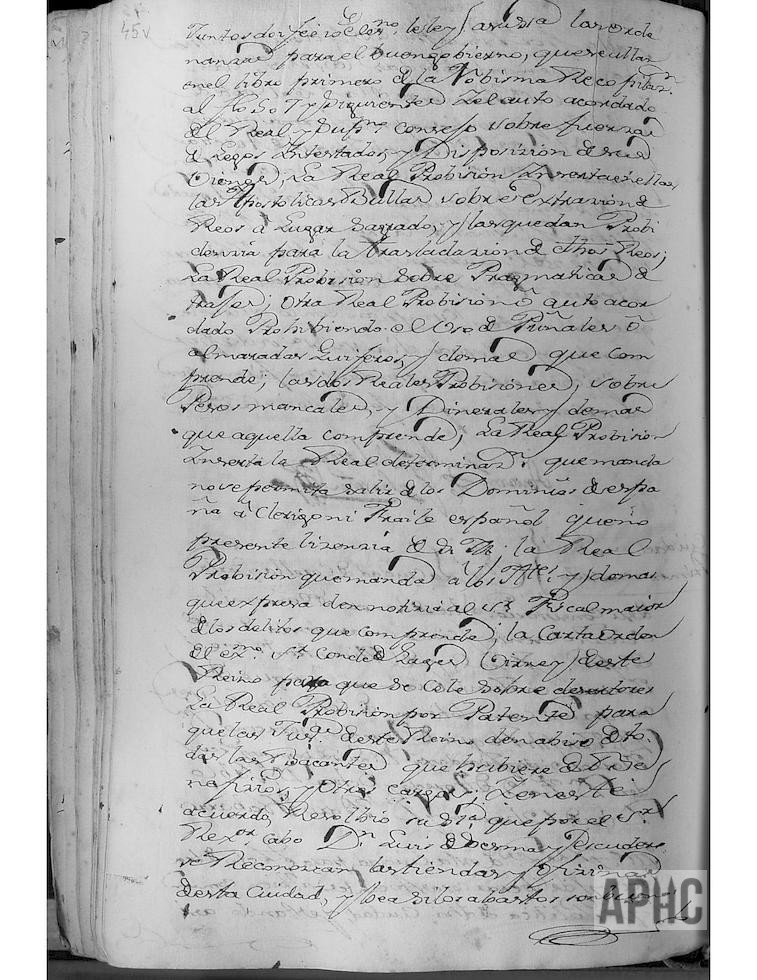 45v
Juntos doi fee io el esno. le ley a su Sa las orde
nanzas para el buen gobierno, que se allan
en el libro primero de la Nobisima Recopilazn.
al folio 7 y siguientes Zel auto acordado
del Real y Supmo. consejo sobre fuerzas
de Legos Intestados, y Disposizion de sus
Vienes, La Real Probision Inserta en ellas
las Apostolicas Bullas sobre extrazion de
Reos a Lugar Sagrado, y las que dan Probi
denzia para la traslazion de dhos Reos;
La Real Probision sobre Pragmaticas de
trajes; otra Real Probision ô auto acor
dado Prohibiendo el Vso de Puñales ô
almaradas Luiferos, y demas que com
prende; las dos Reales Probisiones, sobre
Pesos mancales, y Dinerales y demas
que aquella comprende, La Real Probision
Inserta la Real determinazn. que manda
no se permita salir de los Dominios de espa
ña â Clerigo ni Fraile español que no
presente lizenzia de su M; la Real
Probision que manda â los Ates. y demas
que expresa den notizia al Sr Fiscal maior
de los delitos que comprende; la Carta orden
del exmo. Sr. conde de Gages Virrey de este
Reino para que se cele sobre desertores
La Real Probision por Patente para
que las Jusas. de este Reino den abiso de to
das las Bacantes que hubiere de
y otros cargos, Y en este
acuerdo Resolbio su Sa que por el Sr.
Rexor. cabo Dn. Luis de Serma y Escudero
se Reconozcan las tiendas y Ofizinas
de esta Ciudad, y bea si los abastos son buenos
APHC